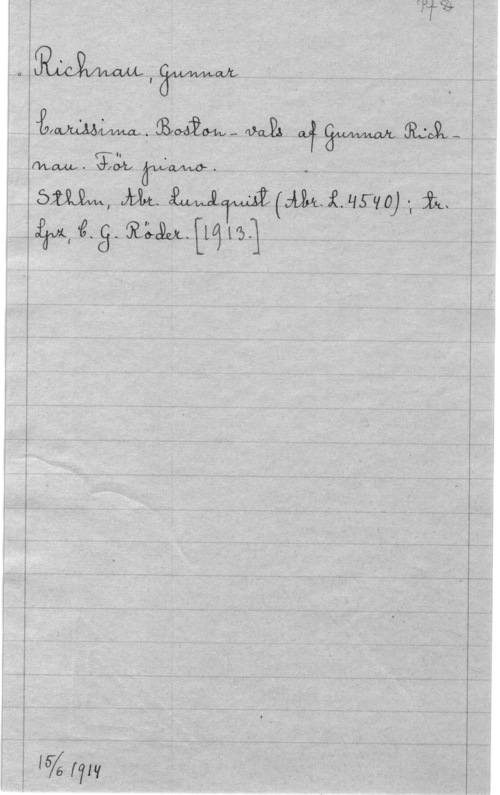 Pf D
Richnau, Gunnar
Carissima. Boston-vals af Gunnar Rich-
nau. För piano.
Sthlm, Abr. Lundquist (Abr. L. 4540); tr.
Lpz, C. G. Röder. [1913.]
15/6 1914